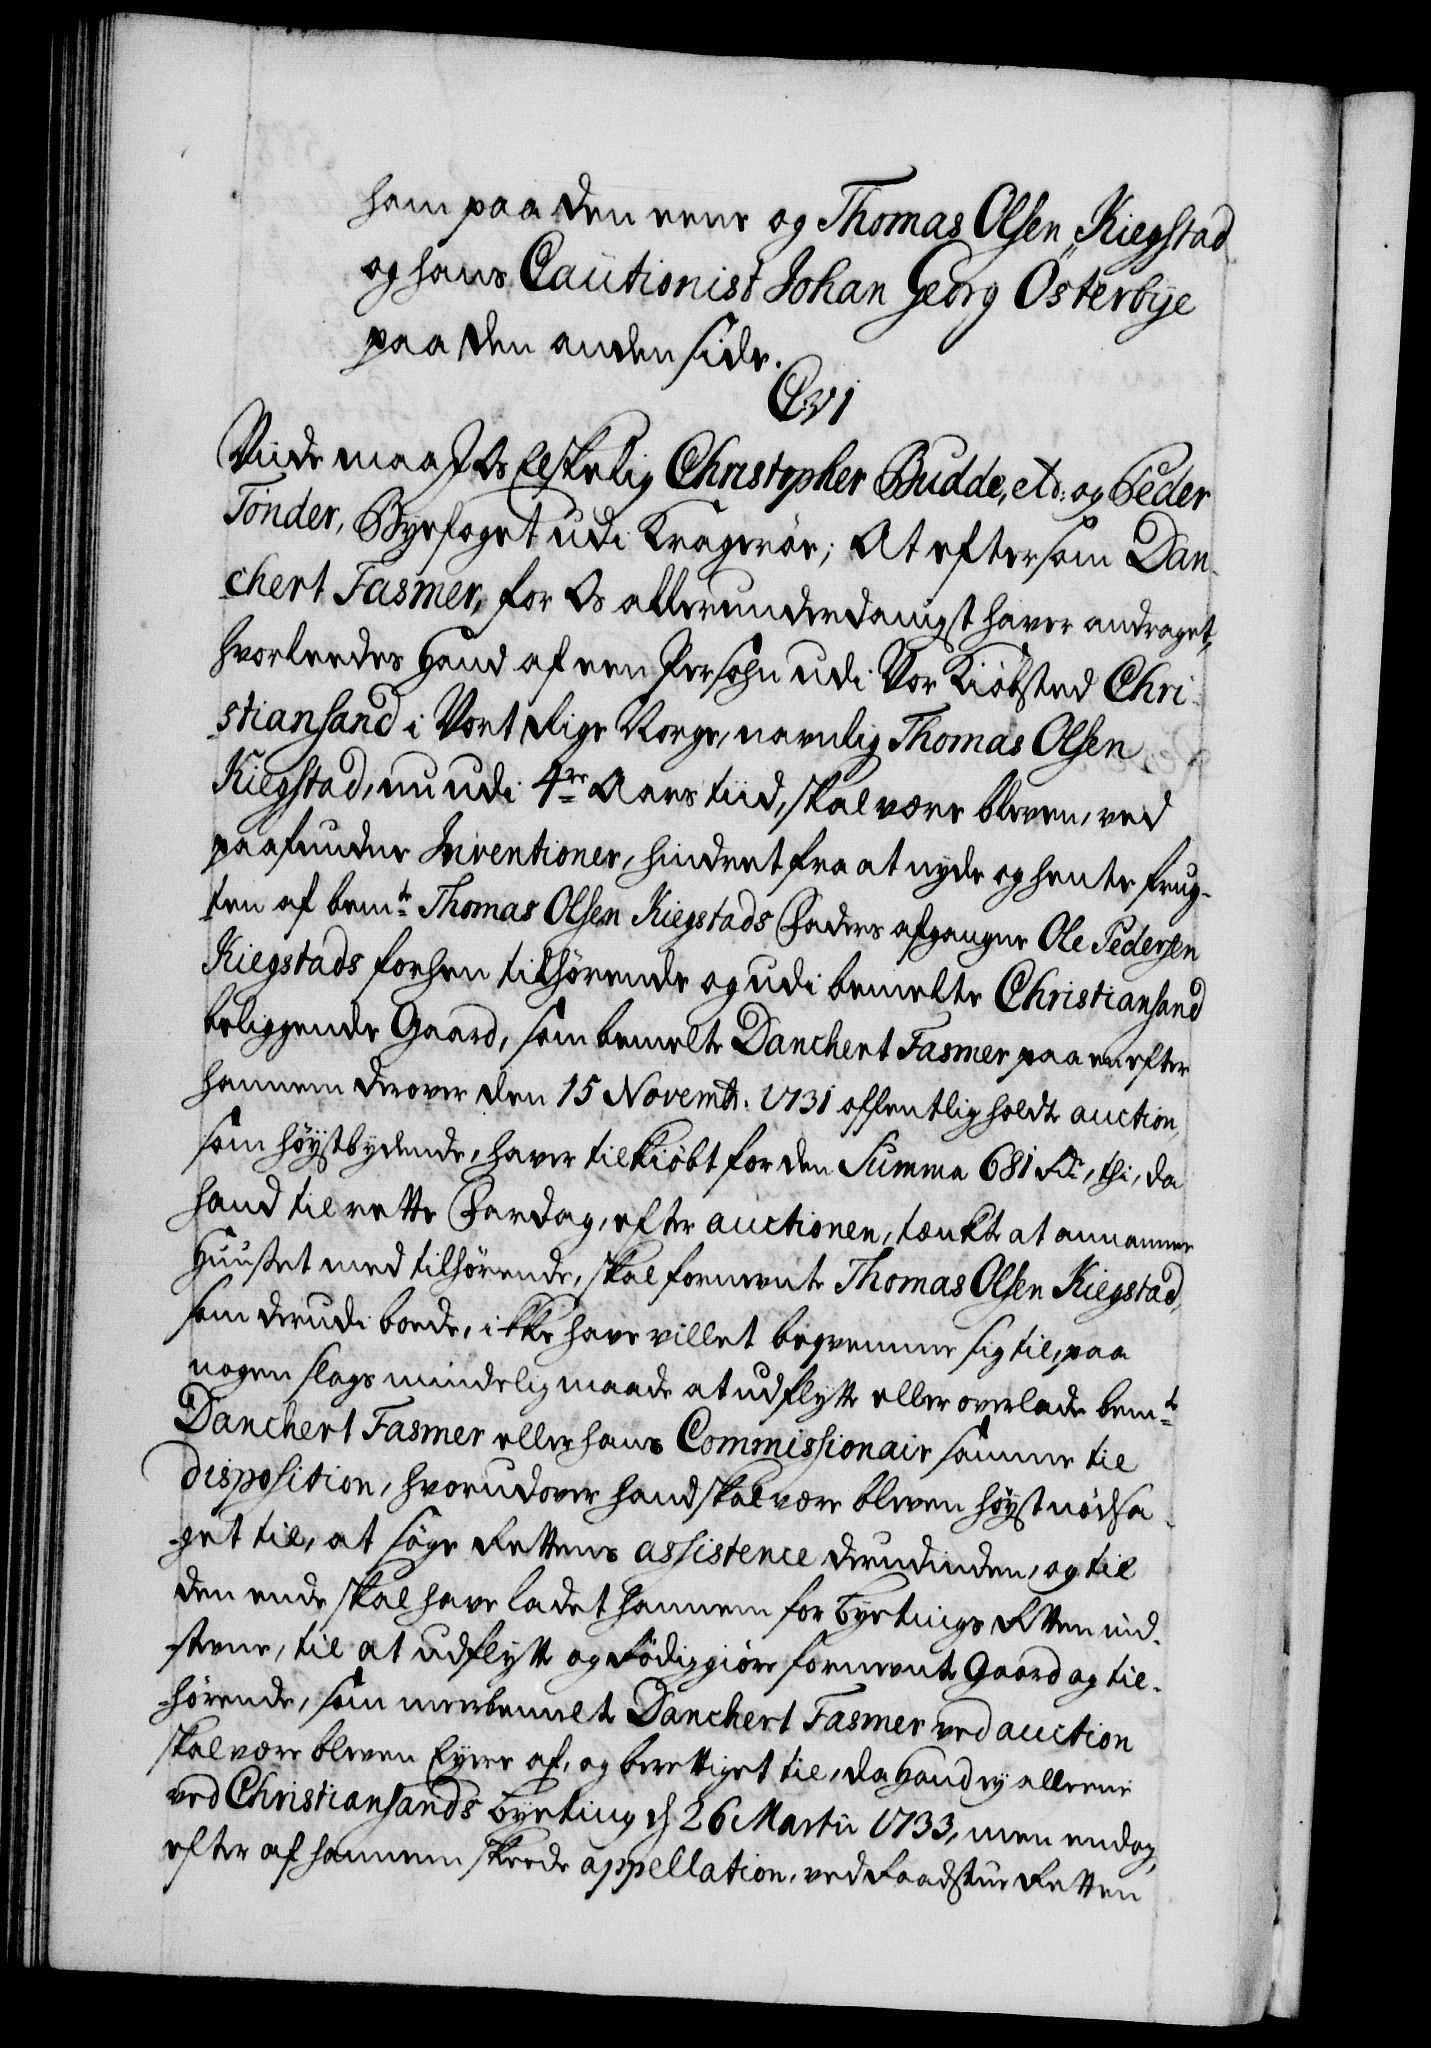 ham paa den eene og Thomas Olsen Kiegstad
og hans Cautionist Johan Georg Österbye
paa den anden side.
C:6
Viide maa I Os Elskelig Christopher Budde, etc: og Peder
Tönder, Byefoget udi Kragerøe; At eftersom Dan-
chert Fasmer, for Os allerunderdanigst haver andraget,
hvorleedes Hand af een Persohn udi Vor Kiöbsted Chri-
stiansand i Vort Rige Norge, navnlig Thomas Olsen
Kiegstad, nu udi 4re Aars tiid, skal være bleven, ved
paafundne Inventioner, hindret fra at nyde og hente frug-
ten af bemte Thomas Olsen Kiegstads Faders afgangne Ole Pedersen
Kiegstads forhen tilhörende og udi bemelte Christiansand
beliggende Gaard, som bemelte Danchert Fasmer paa en efter
hannem derover den 15 Novembr. 1731 offentlig holdte auction,
som höystbydende, haver tilkiöbt for den Summa 681 Rdr, thi, da
hand til rette Fardag, efter auctionen, tænkte at annamme
Huuset med tilhörende, skal fornevnte Thomas Olsen Kiegstad,
som derudi boede, ikke have villet beqvemme sig til, paa
nogen slags mindelig maade at udflytte eller overlade bemte
Danchert Fasmer eller hans Commissionair samme til
disposition, hvorudover hand skal være bleven höyst nödsa-
get til, at söge Rettens assistence derudinden, og til
den ende skal have ladet hannem for Byetings Retten ind-
stevne, til at udflytte og Rödiggiöre fornevnte Gaard og til-
hörende, som meerbemelte Danchert Fasmer ved auction
skal være bleven Eyere af, og berettiget til, da Hand ey alleene
ved Christiansands Byeting d 26 Martii 1733, men endog,
efter af hannem skeede appellation, ved Raadstue Retten